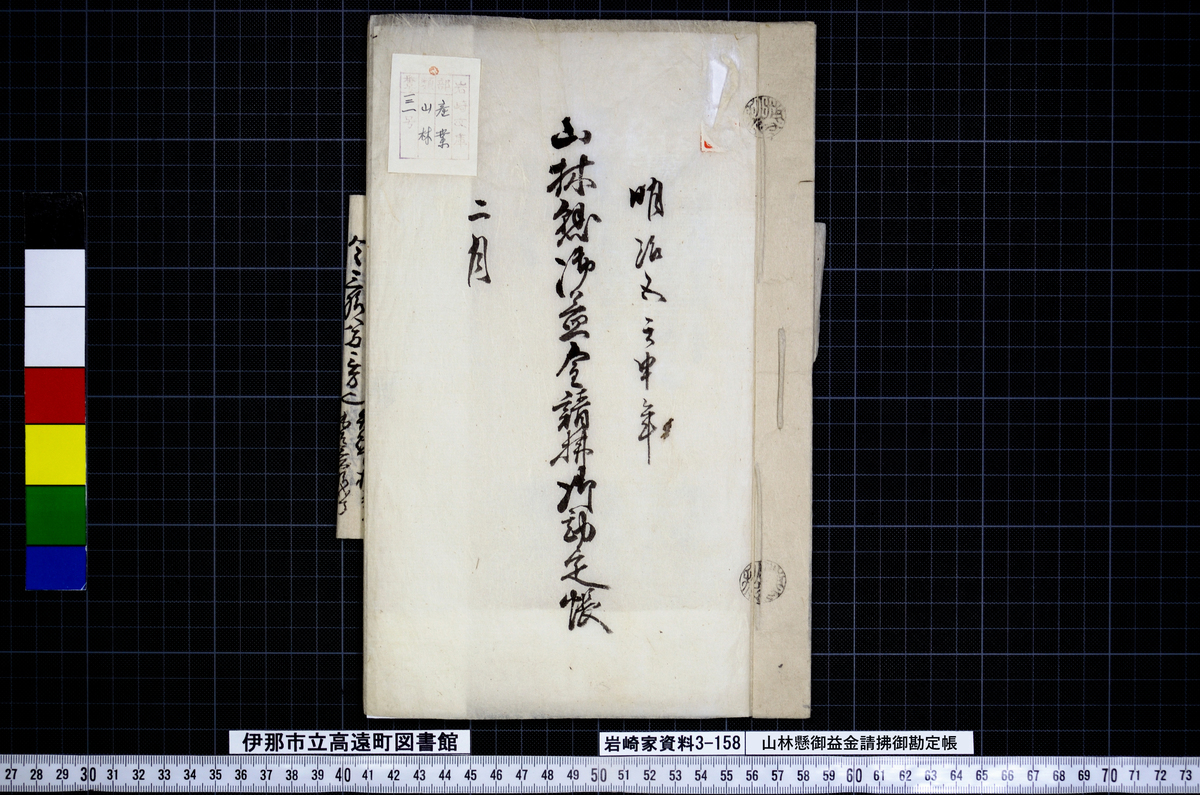 明治五壬申年
山林懸御益金請拂御勘定帳
二月
産業
山林
三
伊那市立高遠町図書館
岩崎家資料3-158
山林懸御益金請拂御勘定帳
27 28 29 30 31 32 33 34 35 36 37 38 39 40 41 42 43 44 45 46 47 48 49 50 51 52 53 54 55 56 57 58 59 60 61 62 63 64 65 66 67 68 69 70 71 72 73